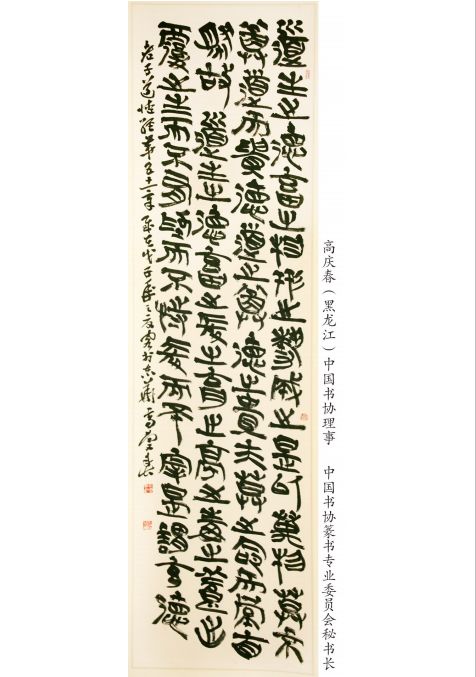 道生之德畜之物形之勢成之是以萬物莫不
尊道而貴德道之尊德之貴夫莫之命而常自
然故道生之德畜之長之育之亭之毒之養之
覆之生而不有為而不恃長而不宰是謂玄德
老子道德經第五十一章歲在戊子書於京華高慶春
高庆春（黑龙江）中国书协理事 中国书协篆书专业委员会秘书长